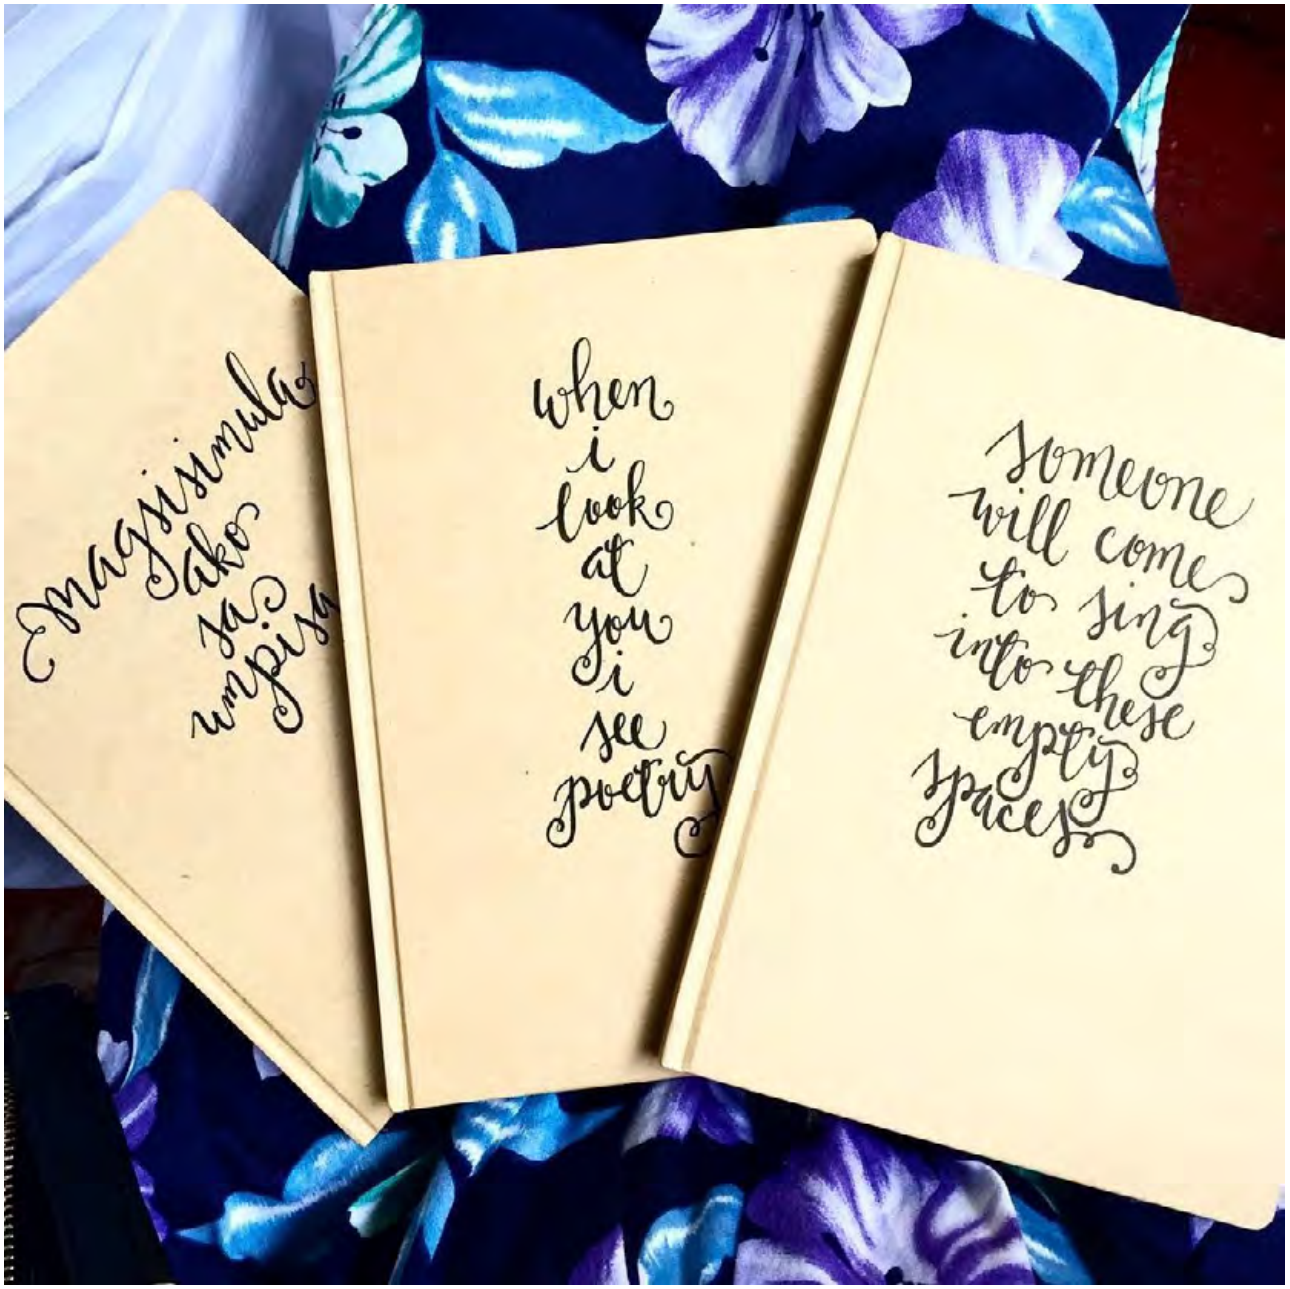 magsisimula
ako
sa
umpisa
when
i
look
at
you
i
see
poetry
someone
will come
to sing
into these
empty
spaces